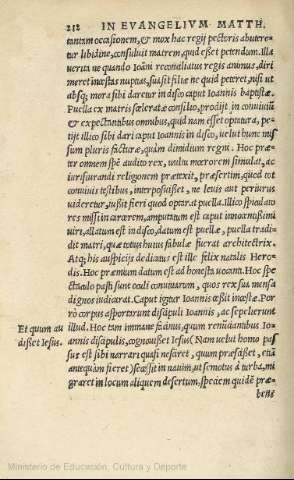 212 IN EVANGELIVM MATTH.
tantam occasionem, & mox hac regij pectoris abuteretur libidine, consuluit matrem, quid esset petendum. Illa
ne quando Ioanni reconciliatus regis animus, dirimeret incestas nuptias, suasit filiæ ne quid peteret, nisi ut
absq; mora sibi daretur in disco caput Ioannis baptistæ.
Puella ex matris sceleratæ consilio, prodijt in conuiuiū
& expectantibus omnibus, quid nam esset optatura, petijt illico sibi dari caput Ioannis in disco, uelut hunc missum pluris factura, quàm dimidium regni. Hoc præter omnem spē audito rex, uultu mœrorem simulat, ac
iurisiurandi religionem prætexit, præsertim, quod tot
conuiuis testibus, interposuisset, ne leuis aut periurus
uideretur, iussit fieri quod optarat puella. Illico spiculatores missi in carcerem, amputatum est caput innocentissimi
uiri, allatum est in disco, datum est puellæ, puella tradidit matri, quæ totius huius fabulæ fuerat architectrix.
Atq; his auspicijs dedicatus est ille felix natalis Herodis. Hoc præmium datum est ad honesta uocanti. Hoc spectaculo pasti sunt oculi conuiuarum, quos rex sua mensa
dignos iudicarat. Caput igitur Ioannis cessit incestæ. Porrò corpus asportarunt discipuli Ioannis, ac sepelierunt
Et quum audisset Iesus.
illud. Hoc tam immane facinus, quum renūciantibus Ioannis discipulis, cognouisset Iesus (Nam uelut homo passus est sibi narrari quasi nesciret, quum præscisset, etiā
antequàm fieret) secessit in nauim, ut semotus à turba, migraret in locum aliquem desertum, speciem quidē præbens
Ministerio de Educación, Cultura y Deporte